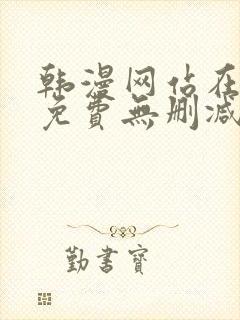 韩漫网站在
免費無删减
勤書寶